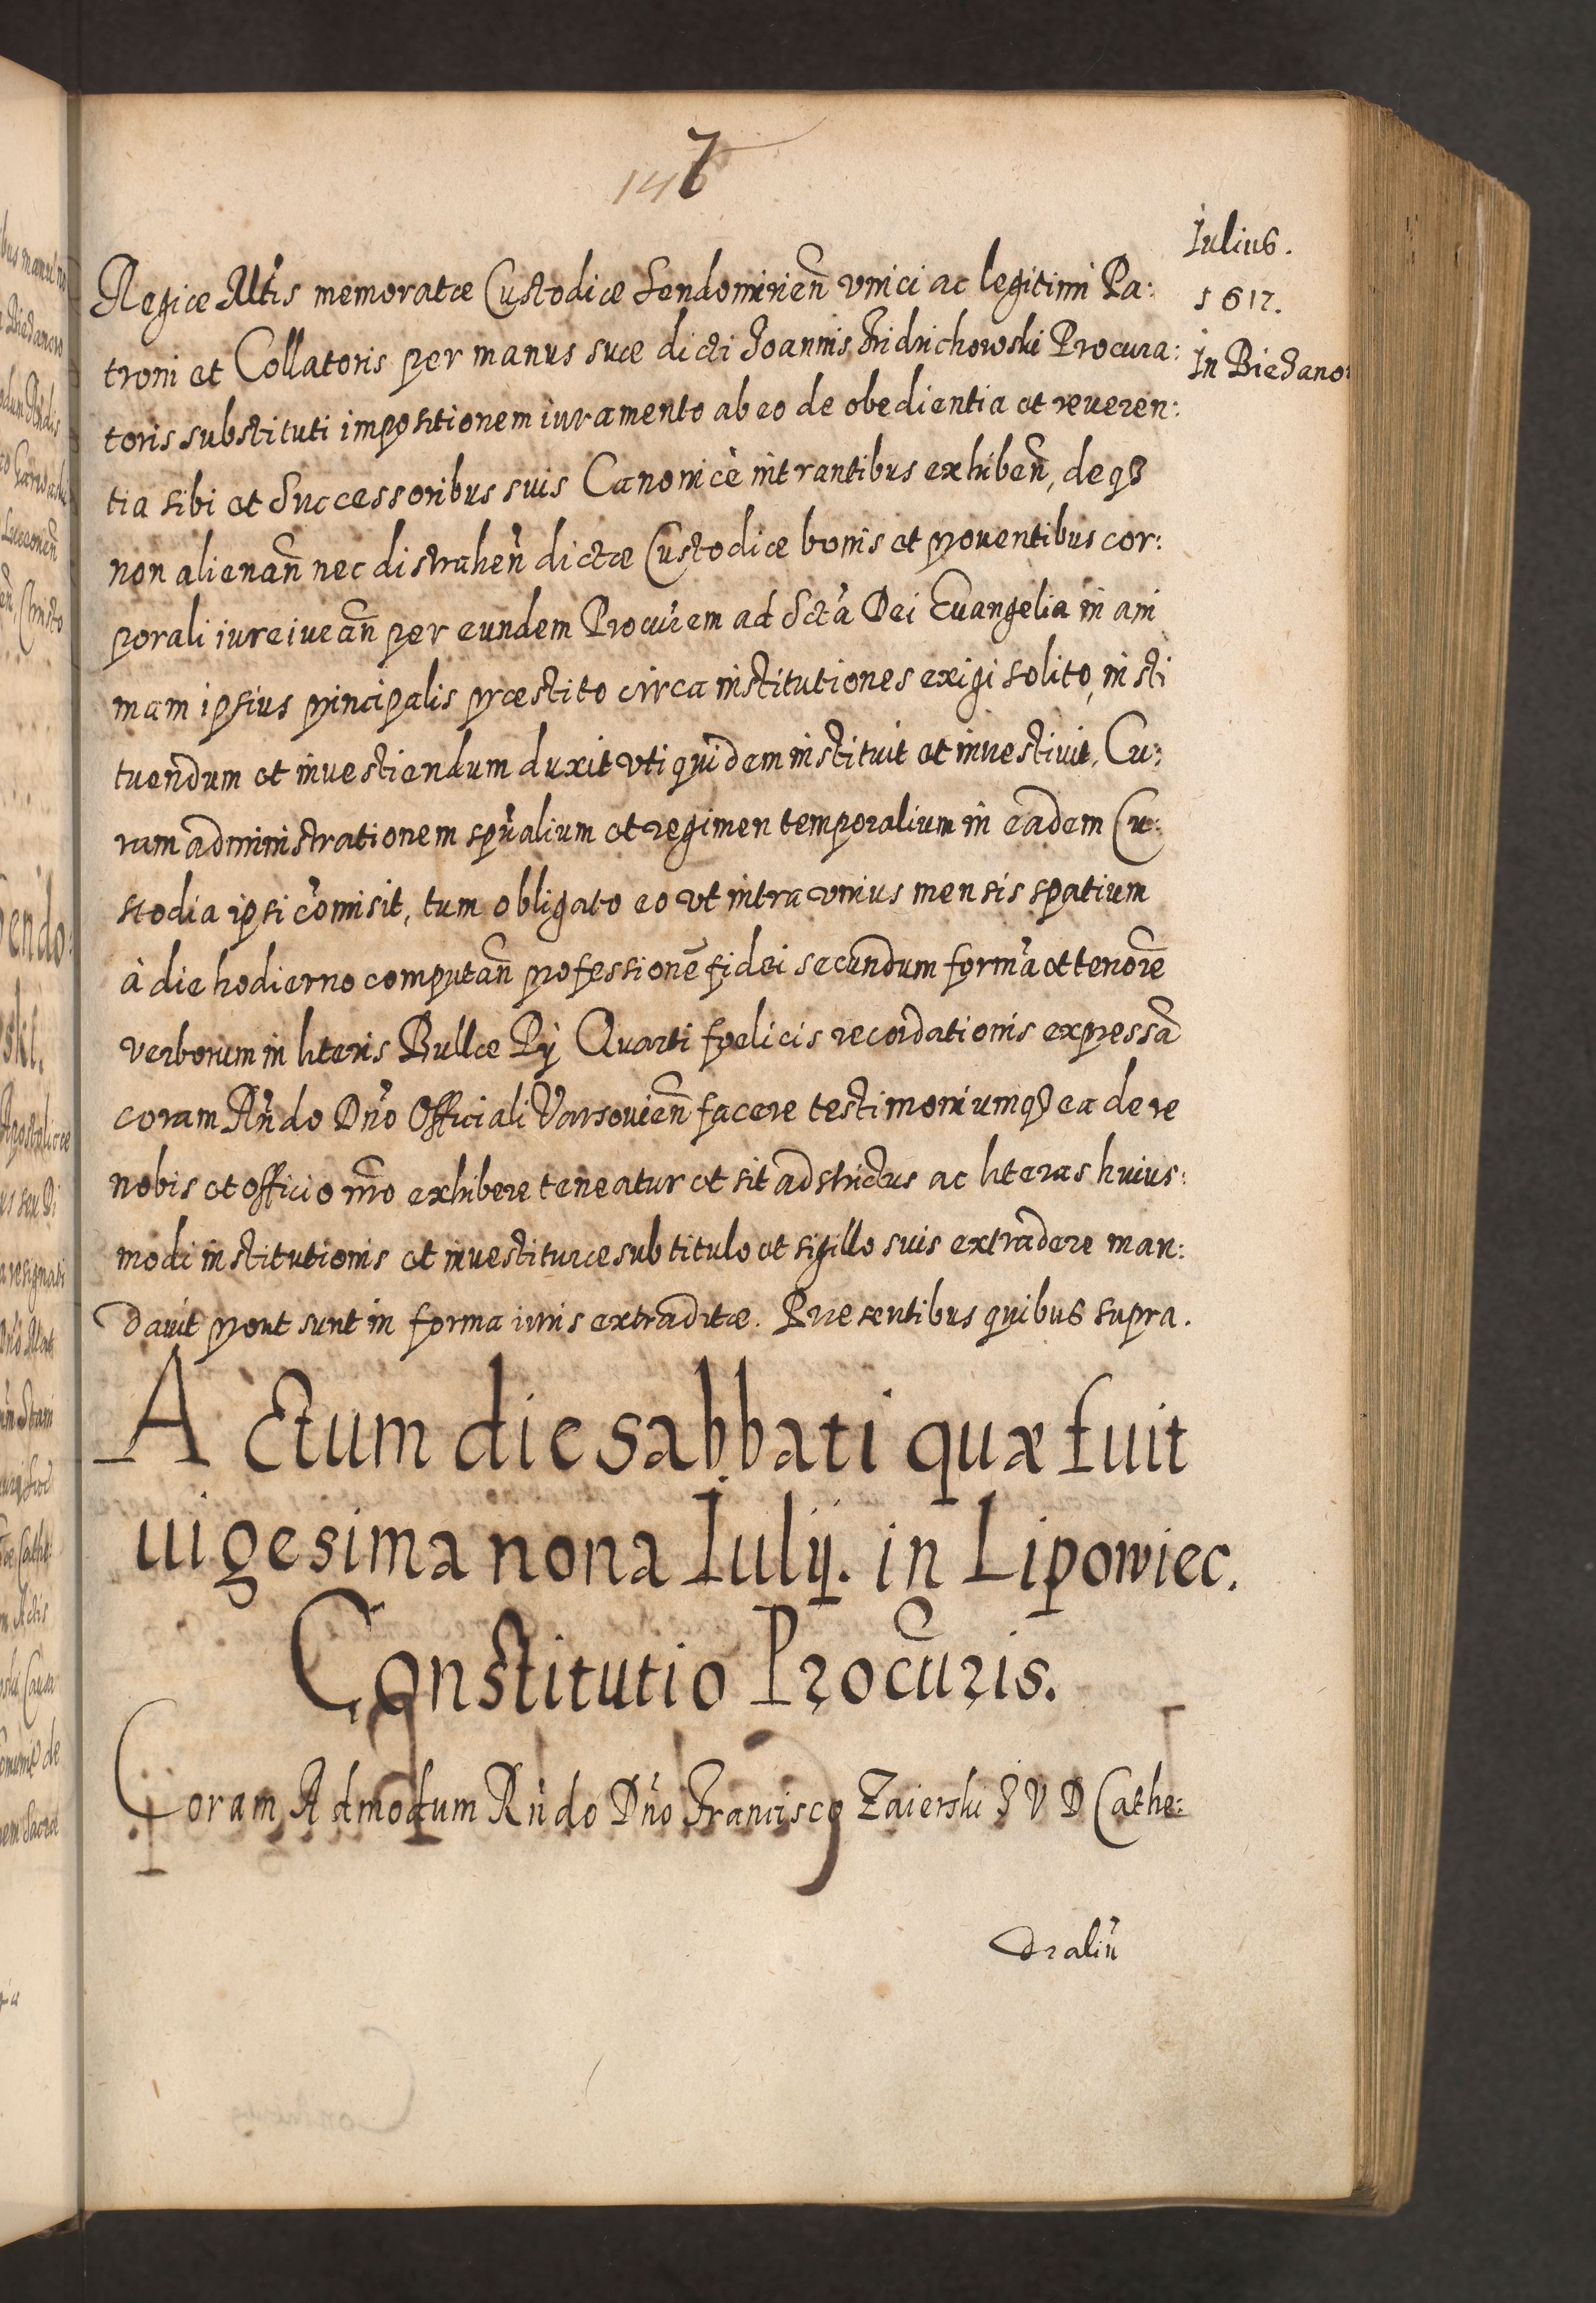 7
146
Iulius.
1617.
In Biedano
Regiæ Mttis memoratæ Custodiæ Sendomirien̄ vnici ac legitimi Pa:
troni et Collatoris per manus suæ dicti Joannis Fridrichowski Procura:
toris substituti impositionem iuramento ab eo de obedientia et reueren:
tia sibi et Successoribus suis Canonicè intrantibus exhiben̄, deqȝ
non alienan̄ nec distrahen̄ dictæ Custodiæ bonis et prouentibus cor:
porali iureiuran̄ per eundem Procur̃em ad Sctã Dei Euangelia in ani
mam ipsius principalis præstito circa institutiones exigi solito, insti
tuendum et inuestiendum duxit vti quidem instituit et inuestiuit, Cu:
ram administrationem spũalium et regimen temporalium in eadem Cu:
stodia ipsi cõmisit, tum obligato eo vt intra vnius mensis spatium
à die hodierno computan̄ professionē fidei secundum formã et tenorē
verborum in literis Bullæ Pij Quarti fœlicis recordationis expressā
coram Rñdo Dño Officiali Varsouien̄ facere testimoniumqȝ ea de re
nobis et officio nr̄o exhibere teneatur et sit adstrictus ac literas huius:
modi institutionis et inuestituræ sub titulo et sigillo suis extradere man:
dauit prout sunt in forma iuris extraditæ. Præsentibus quibus supra.
Actum die sabbati quæ fuit
uigesima nona Iulij. in Lipowiec.
Constitutio Procũris.
Coram Admodum Rñdo Dño Francisco Zaierski I V D Cathe:
draliũ